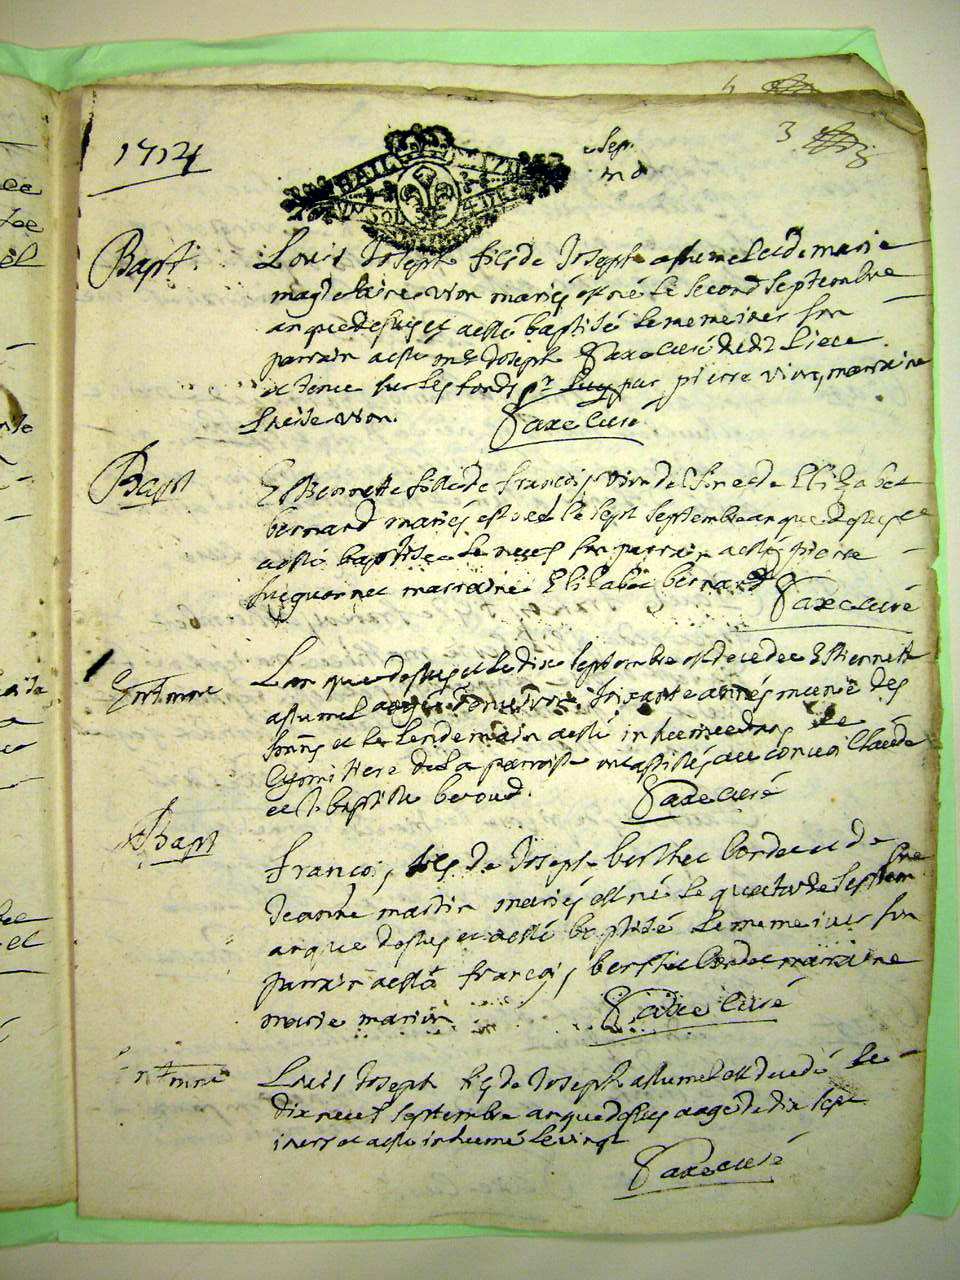 3
1714
Sep
Bapt.
Louis Joseph fils de Joseph asumel et de marie
magdelaine vion mariés est né le second septembre
an que dessus et a esté baptisé le meme iour son
parrain a esté mre Joseph Saxe curé de
et tenu sur les fonds pr luy par pierre vion, marraine
vion. Saxe curé
Bapt
Estiennette fille de françois vion de et de Elizabet
bernard mariés est née le sept septembre an que dessus et
a esté baptisée le neuf son parrain a esté pierre
marraine Elizabet bernard Saxe curé
Entrmnt
Lan que dessus et le dix septembre est decedee Estiennette
asumel agée d'environ soixante années munie des
et le lendemain a esté inhumée dans le
cymitiere de la parroisse ont assistés au convoi Claude
et baptiste beroud. Saxe curé
Bapt
françois fils de Joseph berthet bordet et de
Jeanne martin mariés est né le quatorze septembre
an que dessus et a esté baptisé le meme iour son
parrain a esté françois berthet bordet marraine
marie martin Saxe curé
Louis Joseph fils de Joseph asumel est decedé le
dix neuf septembre an que dessus agé de dix sept
iours et a esté inhumé le vingt
Saxe curé